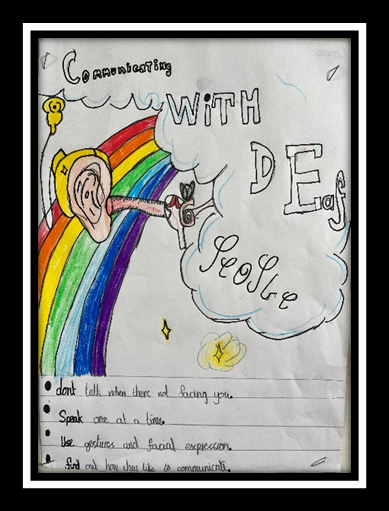 Communicating
WiTH
DEaf
PeoPle
dont talk when there not facing you.
Speak one at a time.
Use gestures and facial expression.
find out how they like to communicate.